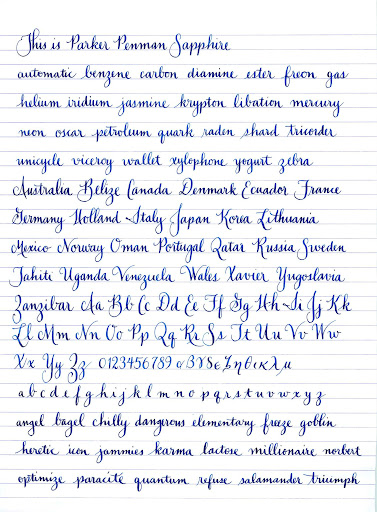 This is Parker Penman Sapphire
automatic benzene carbon diamine ester freon gas
helium iridium jasmine krypton libation mercury
neon oscar petroleum quark raden shard tricorder
unicycle viceroy wallet xylophone yogurt zebra
Australia Belize Canada Denmark Ecuador France
Germany Holland Italy Japan Korea Lithuania
Mexico Norway Oman Portugal Qatar Russia Sweden
Tahiti Uganda Venezuela Wales Xavier Yugoslavia
Zanzibar Aa Bb Cc Dd Ee Ff Gg Hh Ii Jj Kk
Ll Mm Nn Oo Pp Qq Rr Ss Tt Uu Vv Ww
Xx Yy Zz 0123456789 αβγδεζηθικλμ
a b c d e f g h i j k l m n o p q r s t u v w x y z
angel bagel chilly dangerous elementary freeze goblin
heretic icon jammies karma lactose millionaire norbert
optimize paracite quantum refuse salamander triumph